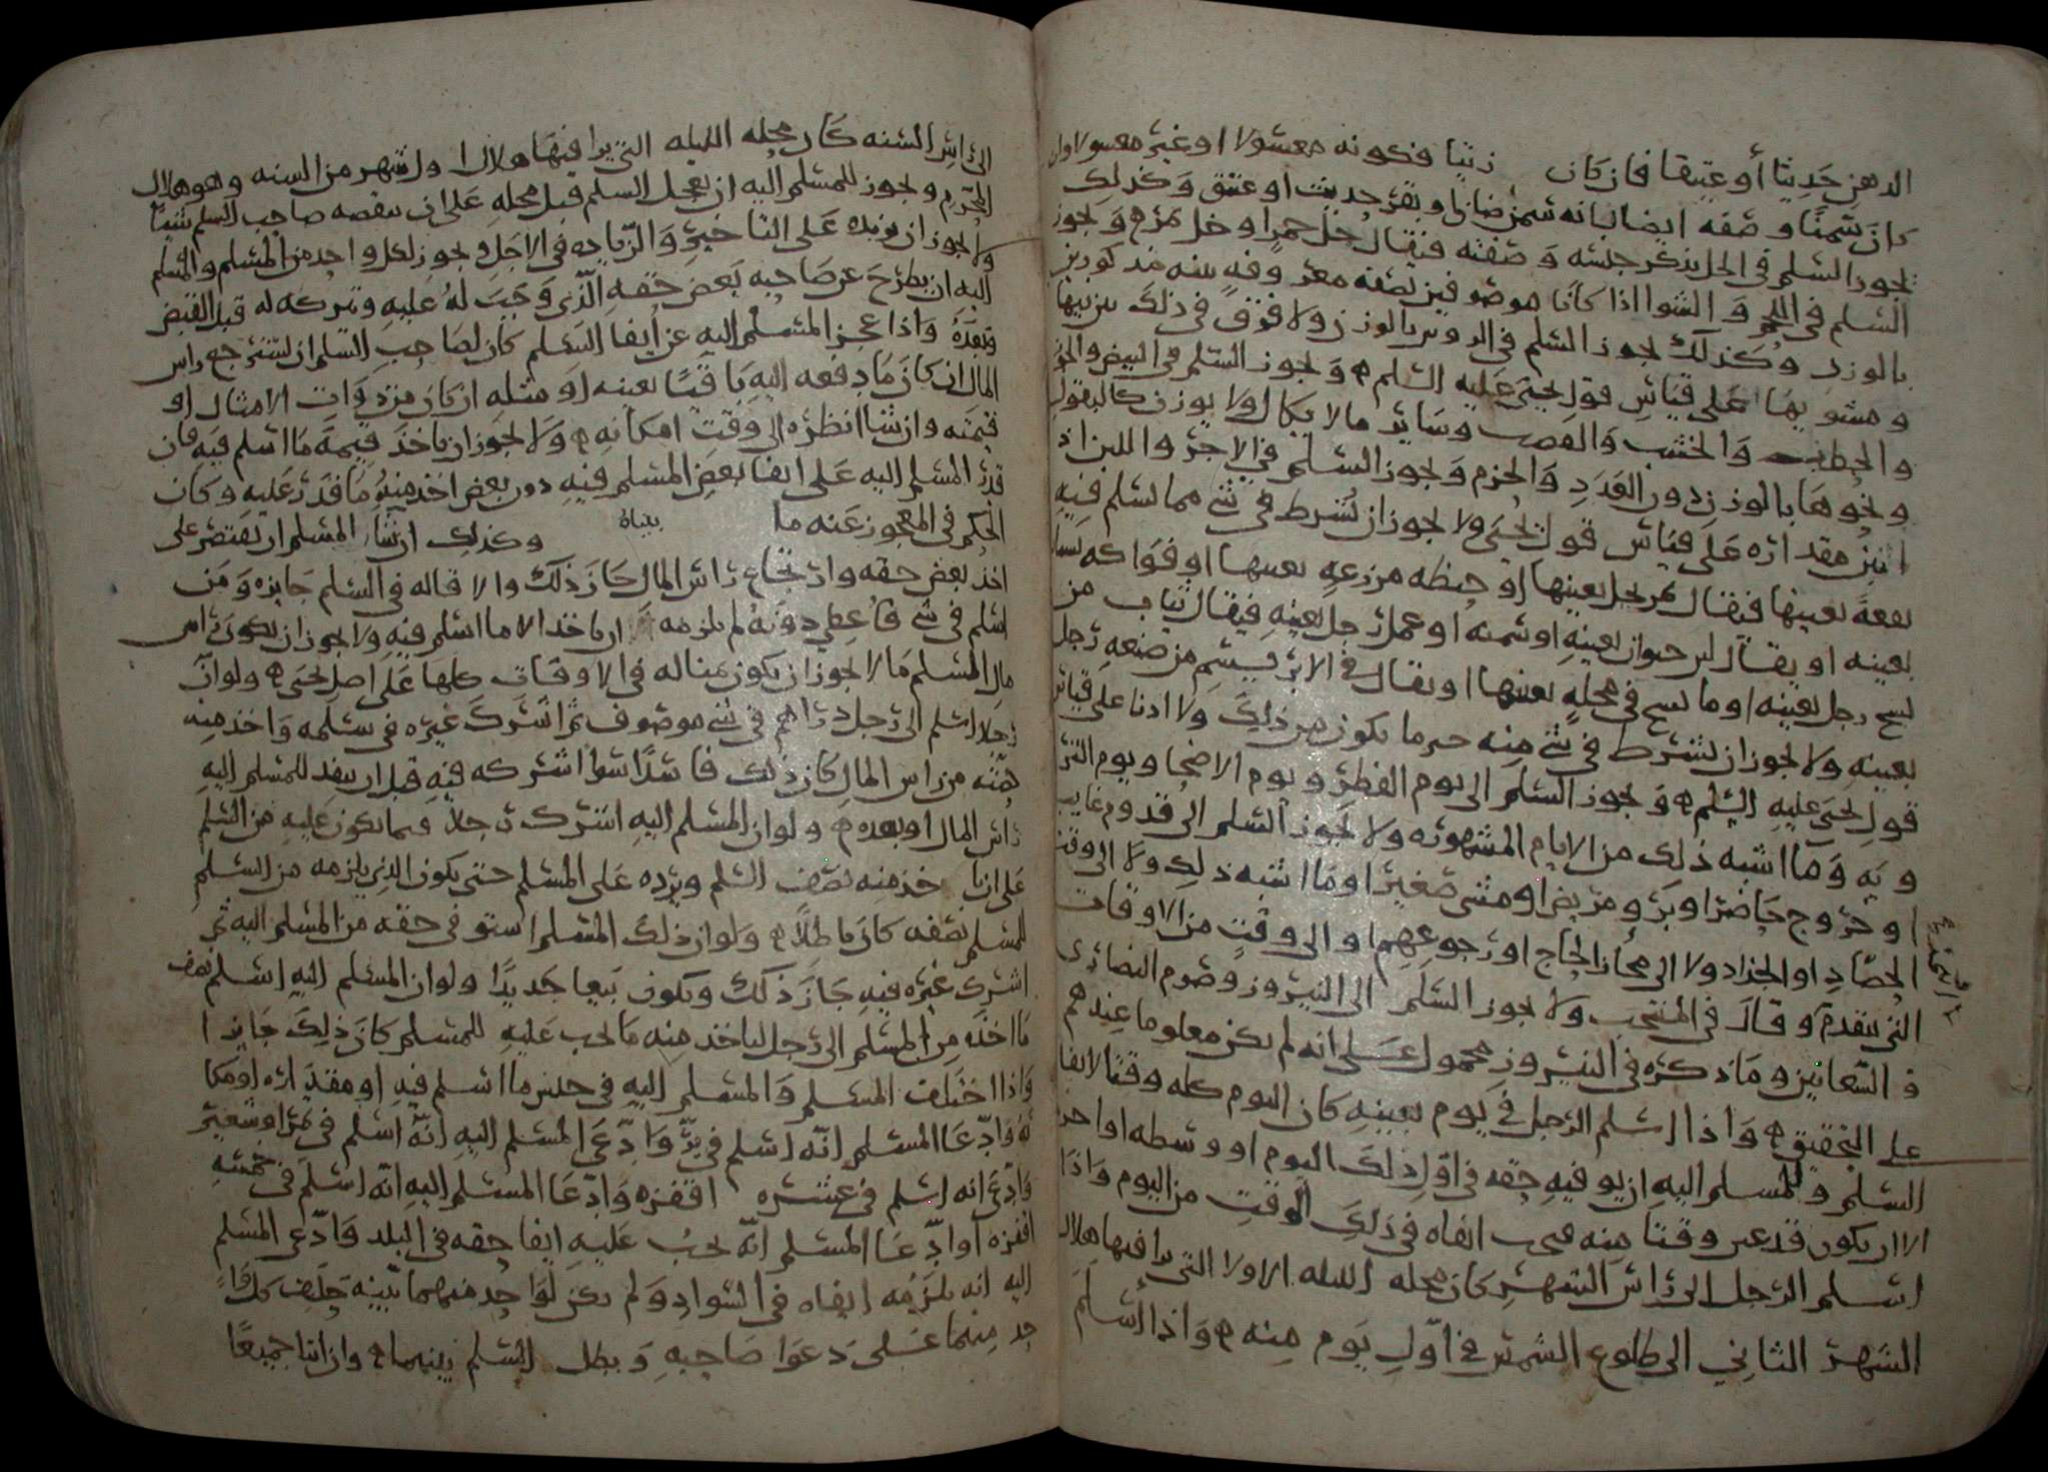 الدهن حديثا أو عتيقا فان كان زيتا فكونه مغسولا او غير مغسول اوان
كان سمنا وصفه ايضا بانه سمن ضان او بقر حديث او عتيق وكذلك
يجوز السلم في الخل يذكر جنسه وصفته فيقال خل خمر او خل تمر ويجوز
السلم في اللحم والشوا اذا كانا موصوفين بصفة معروفه بينه مذكورين
بالوزن وكذلك يجوز السلم في الروس بالوزن ولا فرق في ذلك بين نيها
ومشويها على قياس قول يحيى عليه السلم ويجوز السلم في البيض والجوز
والحطب والخشب والقصب وساير ما لا يكال ولا يوزن كالبقول
ونحوها بالوزن دون العدد والحزم ويجوز السلم في الاجر واللبن اذ
ابين مقداره على قياس قول يحيى ولا يجوز ان يشرط في شي مما يسلم فيه
بقعة بعينها فيقال تمر نخل بعينها او حنطه من زرعه بعينها او فواكه بستان
بعينه او يقال لبن حيوان بعينه او سمنه او عمل رجل بعينه فيقال ثياب من
نسج رجل بعينه او ما نسج في محله بعينها او يقال في الابريسم من صنعه رجل
بعينه ولا يجوز ان يشترط في شي منه خير ما يكون من ذلك ولا ادنا على قياس
قول يحيى عليه السلم ويجوز السلم الى يوم الفطر ويوم الاضحا ويوم التر
ويه وما اشبه ذلك من الايام المشهوره ولا يجوز السلم الى قدوم غايب
او خروج حاضر او برو مريض او مشي صغير او ما اشبه ذلك ولا الى وقت
الحصاد او الجذاد ولا الى مجاز الحاج او رجوعهم او الى وقت من الاوقات
التي تتقدم وقال في المنتخب ولا يجوز السلم الى النيروز وصوم النصارى
والسعانين وما ذكره في النيروز محمول على انه لم يكن معلوما عندهم
على التحقيق واذا اسلم الرجل في يوم بعينه كان اليوم كله وقتا لايفا
السلم وللمسلم اليه ان يوفيه حقه في اول ذلك اليوم او وسطه او اخره
الا ان يكون قد عين وقتا منه فيجب ايفاه في ذلك الوقت من اليوم واذا
اسلم الرجل الى راس الشهر كان محله الليله الاولا التي يرا فيها هلال
الشهر الثاني الى طلوع الشمس في اول يوم منه واذا اسلم
الى راس السنه كان محله الليله التي يرا فيها هلال اول شهر من السنه وهو هلال
المحرم ويجوز للمسلم اليه ان يعجل السلم قبل محله على ان ينقصه صاحب السلم شيئا
ولا يجوز ان يزيده على التاخير والزياده في الاجل ويجوز لكل واحد من المسلم والمسلم
اليه ان يطرح عن صاحبه بعض حقه الذي وجب له عليه وتركه له قبل القبض
وبعده واذا عجز المسلم اليه عن ايفا السلم كان لصاحب السلم ان يسترجع راس
المال ان كان ما دفعه اليه باقيا بعينه او مثله ان كان من ذوات الامثال او
قيمته وان شا انظره الى وقت امكانه ولا يجوز ان ياخذ قيمة ما اسلم فيه فان
قدر المسلم اليه على ايفا بعض المسلم فيه دون بعض اخذ منه ما قدر عليه وكان
الحكم في المعجوز عنه ما بيناه وكذلك ان شا المسلم ان يقتصر على
اخذ بعض حقه وارتجاع راس المال جاز ذلك والاقاله في السلم جايزه ومن
اسلم في شي فاعطي دونه لم يلزمه ان ياخذ الا ما اسلم فيه ولا يجوز ان يكون راس
مال المسلم ما لا يجوز ان يكون مناله في الاوقات كلها على اصل يحيى ولو ان
رجلا اسلم الى رجل دراهم في شي موصوف ثم اشرك غيره في سلمه واخذ منه
ثمنه من راس المال كان ذلك فاسدا سوا اشركه فيه قبل ان ينقد للمسلم اليه
راس المال او بعده ولو ان المسلم اليه اشرك رجلا فيما يكون عليه من السلم
على ان ياخذ منه نصف السلم ويرده على المسلم حتى يكون الذي يلزمه من السلم
للمسلم نصفه كان باطلا ولو ان ذلك المسلم استوفى حقه من المسلم اليه ثم
اشرك غيره فيه جاز ذلك ويكون بيعا جديدا ولو ان المسلم اليه اسلم نصف
ما اخذه من المسلم الى رجل لياخذ منه ما يجب عليه للمسلم كان ذلك جايزا
واذا اختلف المسلم والمسلم اليه في جنس ما اسلم فيه او مقداره او مكا
نه وادعا المسلم انه اسلم في بر وادعى المسلم اليه انه اسلم في تمر او شعير
وادعى انه اسلم في عشره اقفزه وادعا المسلم اليه انه اسلم في خمسه
اقفزه او ادعا المسلم انه يجب عليه ايفا حقه في البلد وادعى المسلم
اليه انه يلزمه ايفاه في السواد ولم يكن لواحد منهما بينه حلف كل وا
حد منهما على دعوا صاحبه وبطل السلم بينهما وان اتيا جميعا